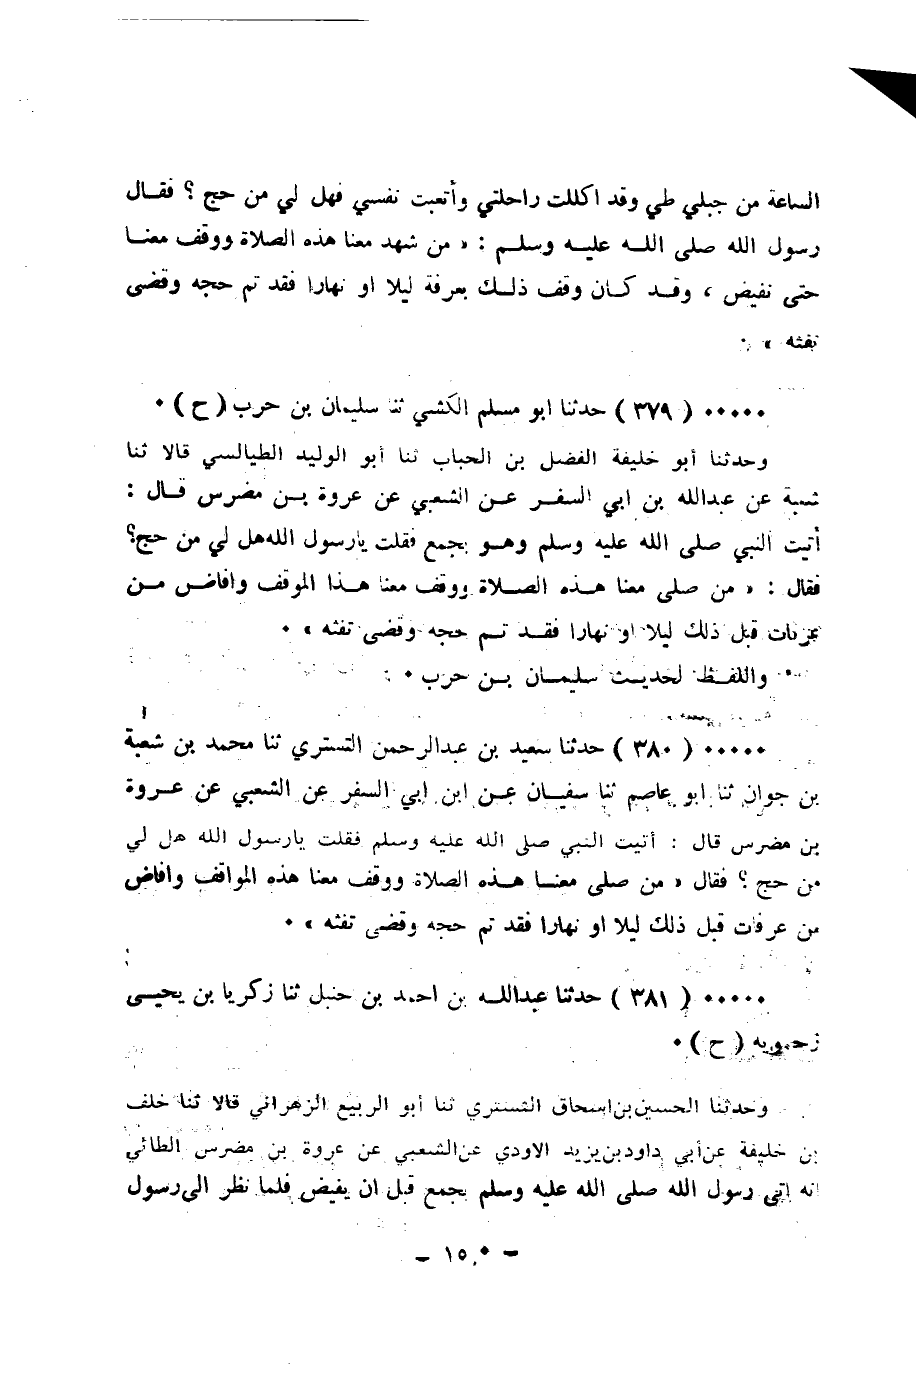 الساعة من جبلي طي وقد اكللت راحلتي وأتعبت نفسي فهل لي من حج ؟ فقال
رسول الله صلى الله عليه وسلم : « من شهد معنا هذه الصلاة ووقف معنا
حتى نفيض ، وقد كان وقف ذلك بعرفة ليلا او نهارا فقد تم حجه وقضى
تفثه » .
٠٠٠٠٠ ( ٣٧٩ ) حدثنا ابو مسلم الكشي ثنا سليمان بن حرب ( ح ) ٠
وحدثنا أبو خليفة الفضل بن الحباب ثنا أبو الوليد الطيالسي قالا ثنا
شعبة عن عبدالله بن ابي السفر عن الشعبي عن عروة بن مضرس قال :
أتيت النبي صلى الله عليه وسلم وهو بجمع فقلت يارسول الله هل لي من حج؟
فقال : « من صلى معنا هذه الصلاة ووقف معنا هذا الموقف وافاض من
عرفات قبل ذلك ليلا او نهارا فقد تم حجه وقضى تفثه » ٠
واللفظ لحديث سليمان بن حرب ٠
٠٠٠٠٠ ( ٣٨٠ ) حدثنا سعيد بن عبدالرحمن التستري ثنا محمد بن شعبة
بن جوان ثنا ابو عاصم ثنا سفيان عن ابن ابي السفر عن الشعبي عن عروة
بن مضرس قال : أتيت النبي صلى الله عليه وسلم فقلت يارسول الله هل لي
من حج ؟ فقال « من صلى معنا هذه الصلاة ووقف معنا هذه المواقف وافاض
من عرفات قبل ذلك ليلا او نهارا فقد تم حجه وقضى تفثه » ٠
٠٠٠٠٠ ( ٣٨١ ) حدثنا عبدالله بن احمد بن حنبل ثنا زكريا بن يحيى
زحمويه ( ح ) ٠
وحدثنا الحسين بن اسحاق التستري ثنا أبو الربيع الزهراني قالا ثنا خلف
بن خليفة عن أبي داود بن يزيد الاودي عن الشعبي عن عروة بن مضرس الطائي
انه اتى رسول الله صلى الله عليه وسلم بجمع قبل ان يفيض فلما نظر الى رسول
– ١٥٠ –